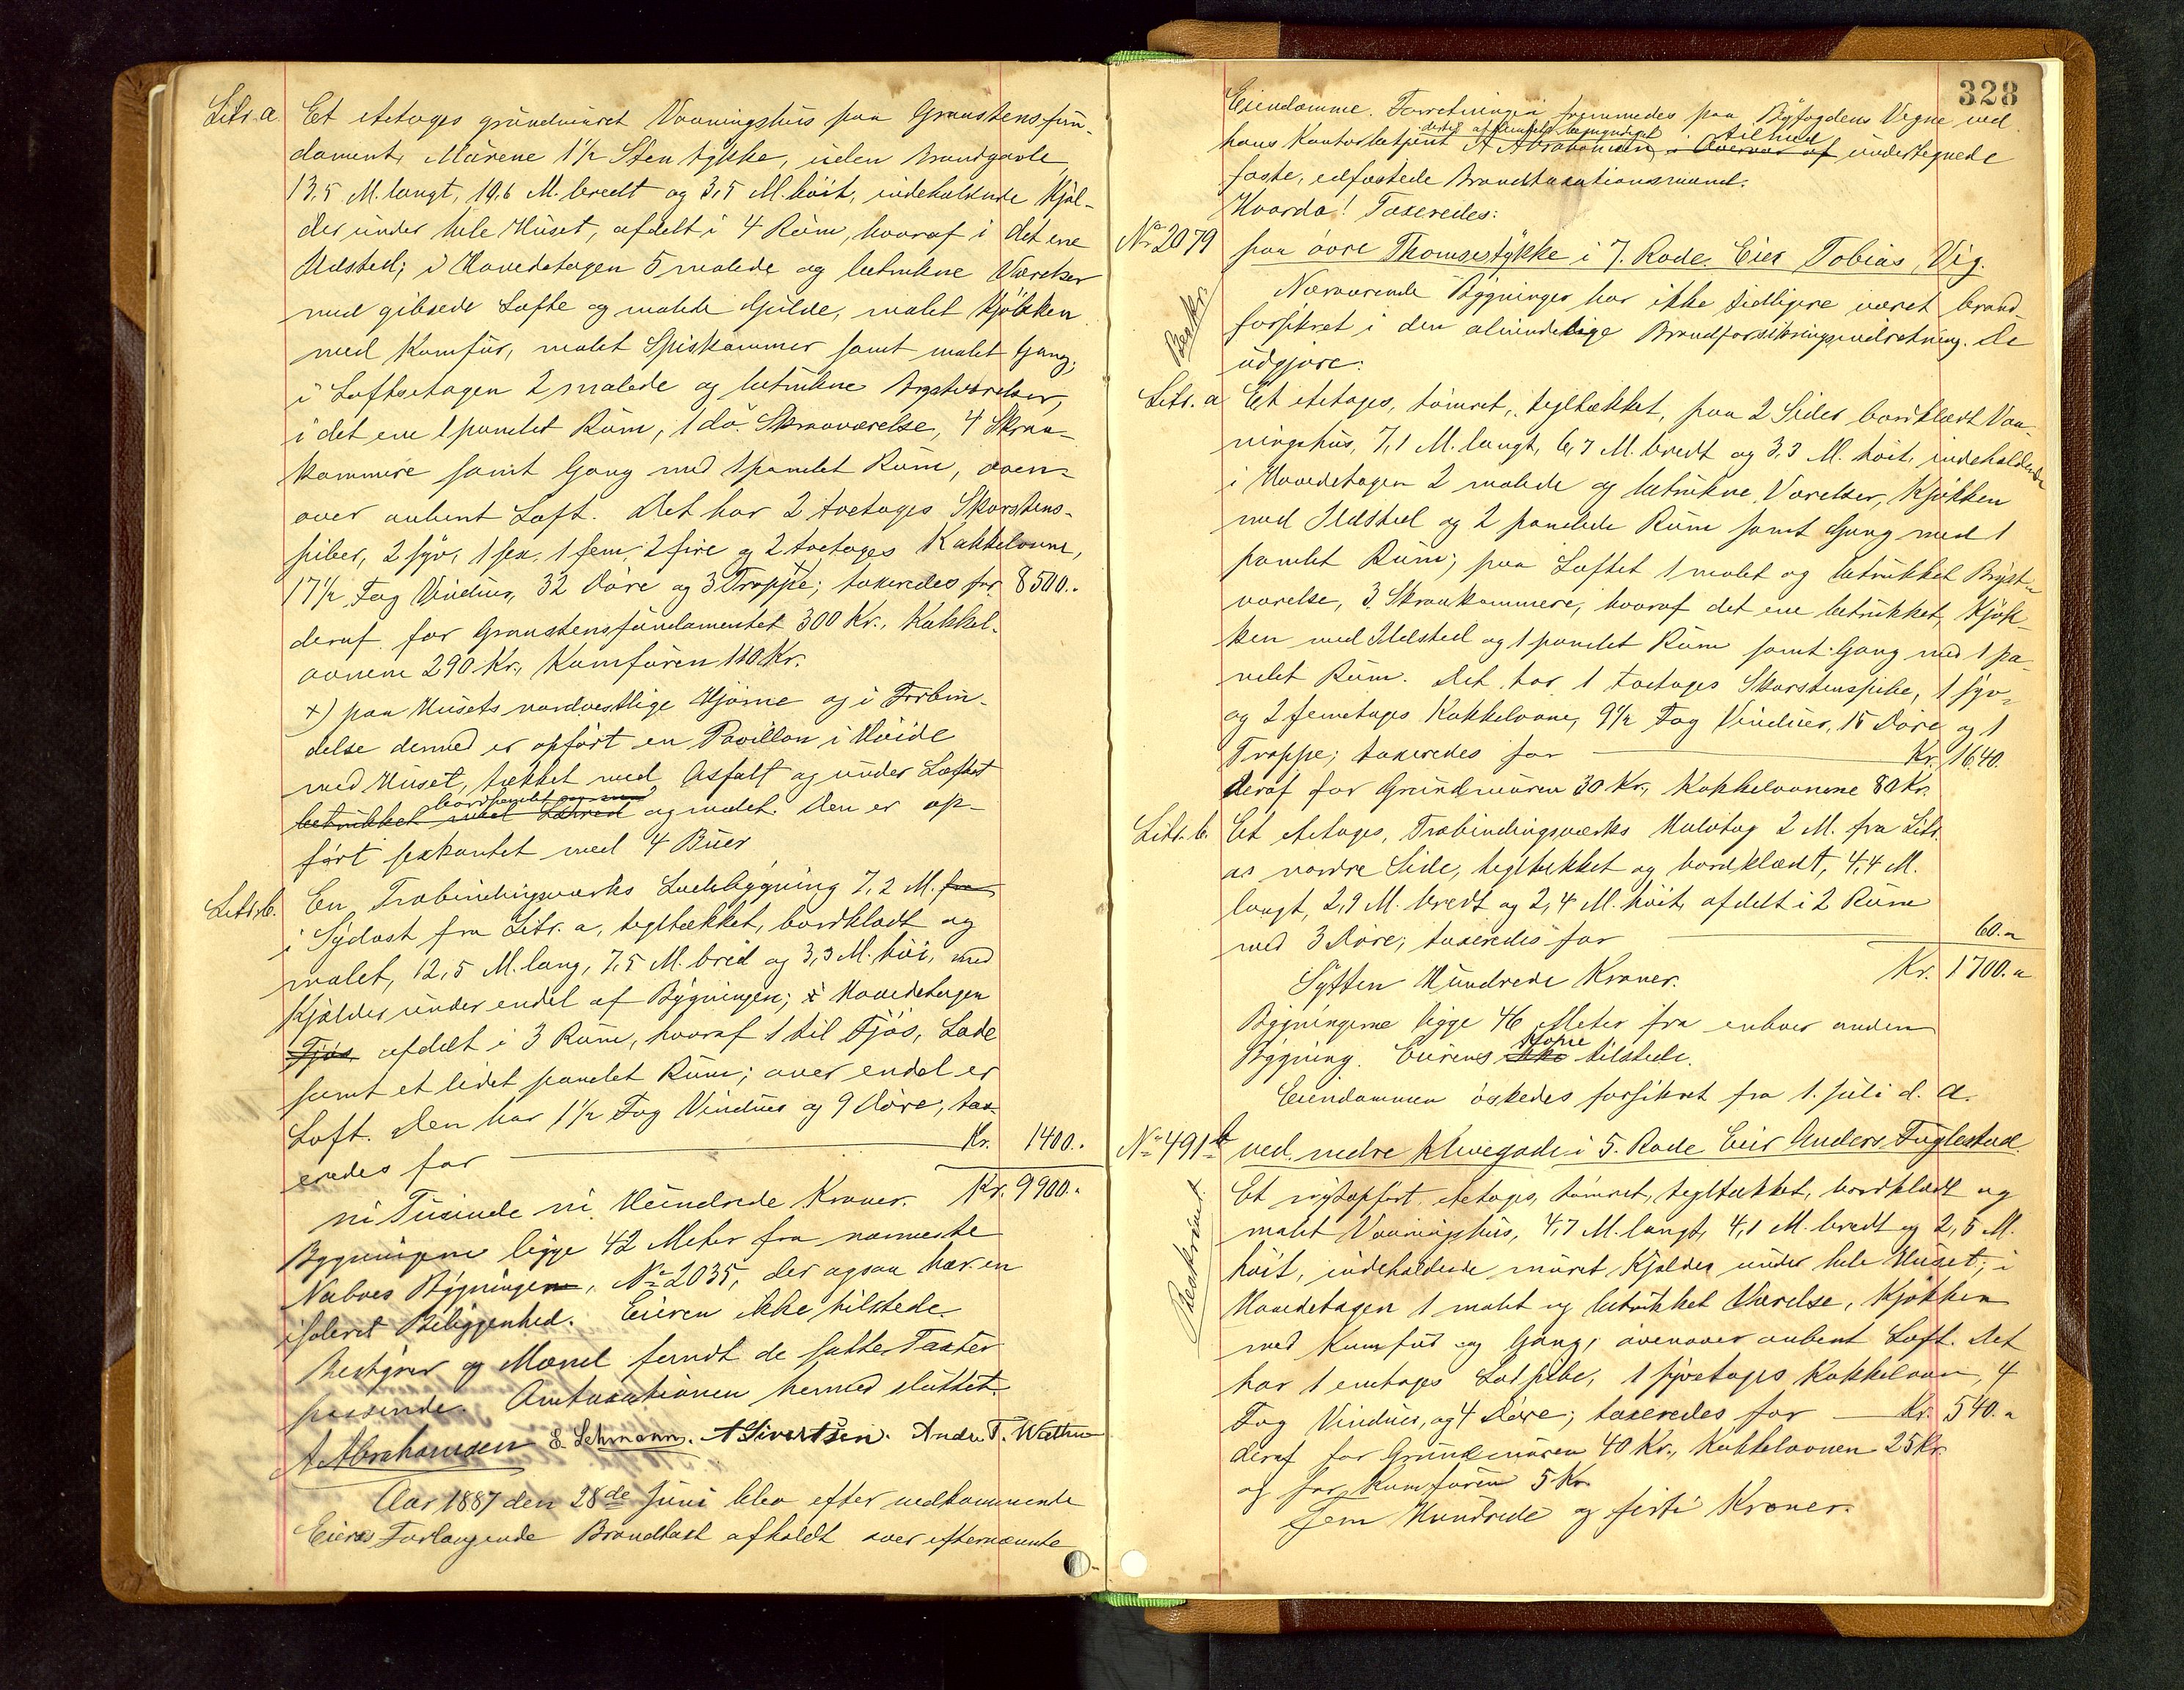 Litr. a Et etetages grundmuret Vaaningshus paa Graastensfun-
dament, Murene 1½ Sten tykke, uden Brandgavle,
13,5 M. langt, 10,6 M. bredt og 3,5 M. höit, indeholdende Kjæl-
der under hele Huset, afdelt i 4 Rum, hvoraf i det ene
Ildsted; i Hovedetagen 5 malede og betrukne Værelser
med gibsede Lofte og malede Gulve, malet Kjökken
med Komfur, malet Spiskammer samt malet Gang;
i Loftsetagen 2 malede og betrukne Brystværelser,
i det ene 1 panelet Rum, 1 do. Skraaværelse, 4 Skraa-
kammere samt Gang med 1 panelet Rum, oven-
over aabent Loft. Det har 2 toetages Skorstens-
piber, 2 syv, 1 sex, 1 fem, 2 fire og 2 toetages Kakkelovne,
17½ Fag Vinduer, 32 Döre og 3 Trappe; taxeredes for 8500.-
deraf for Graastensfundamentet 300 Kr., Kakkel-
ovnene 290 Kr., Komfuren 110 Kr.
+) paa Husets nordvestlige Hjörne og i Forbin-
delse dermed er opfört en Pavillon i Höide
med Huset, tækket med Asfalt og under Loftet
bordpanelet
betrukket med Lærred og malet. Den er op-
fört sexkantet med 4 Buer
Litr. b. En Træbindingsværks Ladebygning 7,2 M. fra
i Sydost fra Litr. a, tegltækket, bordklædt og
malet, 12,5 M. lang, 7,5 M. bred og 3,3 M. höi, med
Kjælder under endel af Bygningen; i Hovedetagen
Fjös afdelt i 3 Rum, hvoraf 1 til Fjös, Lade
samt et lidet panelet Rum; over endel er
Loft. Den har 1½ Fag Vinduer og 9 Döre, tax-
eredes for Kr. 1400.-
ni Tusinde ni Hundrede Kroner. Kr. 9900.-
Bygningerne ligge 42 Meter fra nærmeste
Naboes Bygningen, No 2035, der ogsaa har en
isoleret Beliggenhed. Eieren ikke tilstede.
Bestyrer og Mænd fandt de satte Taxter
passende. Omtaxationen hermed sluttet
A Abrahamsen E. Lehmann. A Sivertsen. Andr. T. Wathne
Aar 1887 den 28de Juni blev efter vedkommende
Eieres Forlangende Brandtaxt afholdt over efternævnte
328
Eiendomme. Forretningen fremmedes paa Byfogdens Vegne ved
dertil af bemyndiget tilmed
hans Kontorbetjent A Abrahamsen, i Overvær af undertegnede
faste, edfæstede Brandtaxationsmænd.
Hvorda! Taxeredes:
No 2079 paa övre Thomsestykke i 7. Rode. Eier Tobias Vig.
Beskr.
Nærværende Bygninger har ikke tidligere været brand-
forsikret i den almindelige Brandforsikringsindretning. De
udgjøre:
Litr. a Et etetages, tömret, tegltækket, paa 2 Sider bordklædt Vaa-
ningshus, 7,1 M. langt, 6,7 M. bredt og 3,3 M. höit, indeholdende
i Hovedetagen 2 malede og betrukne Værelser, Kjökken
med Ildsted og 2 panelede Rum samt Gang med 1
panelet Rum; paa Loftet 1 malet og betrukket Bryst-
værelse, 3 Skraakammere, hvoraf det ene betrukket, Kjök-
ken med Ildsted og 1 panelet Rum samt Gang med 1 pa-
nelet Rum. Det har 1 toetages Skorstenspibe, 1 syv-
og 2 femetages Kakkelovne, 9½ Fag Vinduer, 15 Döre og 1
Trappe; taxeredes for Kr. 1640.
deraf for Grundmuren 30 Kr., Kakkelovnene 80 Kr.
Litr. b. Et etetages, Træbindingsværks Halvtag 2 M. fra Litr.
as nordre Side, tegltækket og bordklædt, 4,4 M.
langt, 2,9 M. bredt og 2,4 M. höit, afdelt i 2 Rum
med 3 Döre; taxeredes for 60.-
Sytten Hundrede Kroner. Kr. 1700.-
Bygningerne ligge 46 Meter fra enhver anden
Kone
Bygning. Eierens ikke tilstede.
Eiendommen önskedes forsikret fra 1. Juli d. A.
No 491b ved nedre Klevegade i 5. Rode Eier Anders Fuglestad.
Beskrevet
Et nytopfört etetages, tömret, tegltækket, bordklædt og
malet Vaaningshus, 4,7 M. langt, 4,1 M. bredt og 2,5 M.
höit, indeholdende muret Kjælder under hele Huset; i
Hovedetagen 1 malet og betrukket Værelse, Kjökken
med Komfur og Gang, ovenover aabent Loft. Det
har 1 enetages Lodpibe, 1 syvetages Kakkelovn, 4
Fag Vinduer, og 4 Döre; taxeredes for Kr. 540.-
deraf for Grundmuren 40 Kr., Kakkelovnen 25 Kr.
og for Komfuren 5 Kr.
Fem Hundrede og firti Kroner.